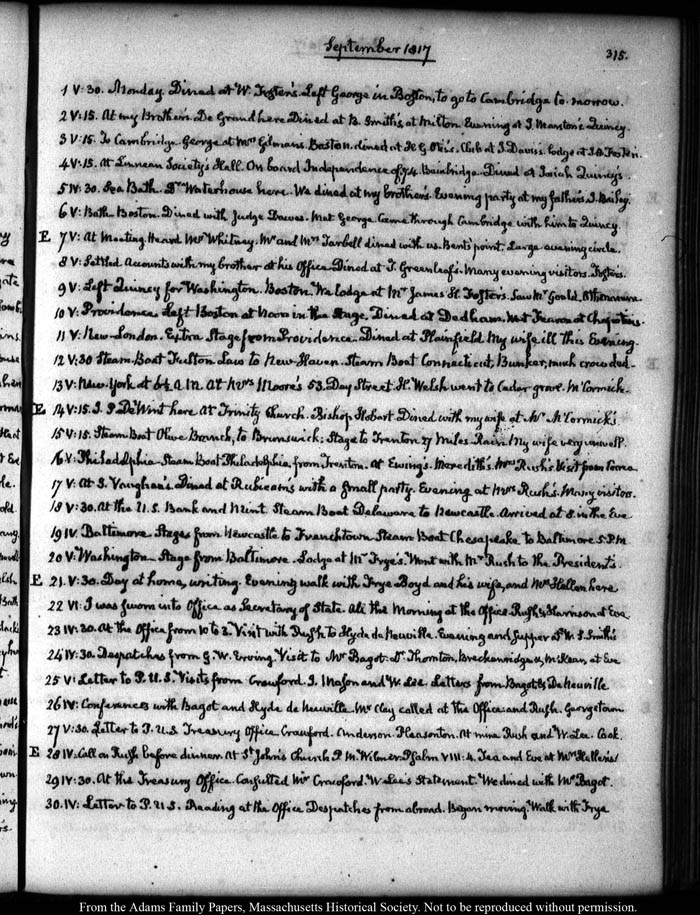 September 1817
315.
1 V: 30. Monday. Dined at W. Foster's. Left George in Boston, to go to Cambridge to-morrow.
2 V: 15. At my Brother's. De Grand here Dined at B. Smith's at Milton. Evening at J. Marston's Quincy.
3 V: 15. To Cambridge. George at Mrs Gilmans. Boston. dined at H. G. Otis's. Club at J. Davis's. lodge at
4 V: 15. At Linnean Society's Hall. On board Independence of 74. Bainbridge. Dined at Josiah Quincy's.
5 IV: 30. Sea Bath. Dr Waterhouse here. We dined at my brother's. Evening party at my father's. J. Bailey.
6 V: Bath. Boston. Dined with Judge Dawes. Met George. Came through Cambridge with him to Quincy.
E 7 V: At Meeting. Heard Mr Whitney. Mr and Mrs Tarbell dined with us. Bent's point. Large evening circle.
8 V: Settled Accounts with my brother at his Office. Dined at T. Greenleaf's. Many evening visitors. Fosters.
9 V: Left Quincy for Washington. Boston. We lodge at Mr James H. Foster's. Saw Mr Gould. Athenaeum.
10 V: Providence. Left Boston at Noon in the Stage. Dined at Dedham. Met Fearon at
11 V: New-London. Extra Stage from Providence. Dined at Plainfield. My wife ill this Evening.
12 V: 30 Steam-Boat Fulton Law to New-Haven Steam Boat Connecticut, Bunker, much crowded.
13 V: New-York at 6½ A.M. At Mrs Moore's 53. Day Street. H. Welsh went to Cedar grove. McCormick.
E 14 V: 15. J. P. De Wint here At Trinity Church. Bishop Hobart Dined with my wife at Mr McCormick's
15 V: 15. Steam Boat Olive Branch, to Brunswick; Stage to Trenton 27 Miles. Rain. My wife very unwell.
16 V: Philadelphia Steam Boat Philadelphia, from Trenton. At Ewing's. Meredith's. Mrs Rush's. Visit from Correa.
17 V: At J. Vaughan's. Dined at Rubicam's with a small party. Evening at Mrs Rush's. Many visitors.
18 V: 30. At the U.S. Bank and Mint. Steam Boat Delaware to Newcastle. Arrived at 8. in the Eve
19 IV: Baltimore. Stages from Newcastle to Frenchtown Steam Boat Chesapeake to Baltimore 5 P.M
20 V: Washington. Stage from Baltimore. Lodge at Mr Frye's. Went with Mr Rush to the President's.
E 21. V: 30. Day at home, writing. Evening walk with Frye. Boyd and his wife, and Mrs Hellen here
22 VI: I was sworn into Office as Secretary of State. All the Morning at the Office. Rush & Harrison at Eve
23 IV: 30. At the Office from 10 to 2. Visit with Rush to Hyde de Neuville. Evening and Supper at W. S. Smith's
24 IV: 30. Despatches from G. W. Erving. Visit to Mr Bagot. Dr Thornton, Breckenridge, McKean, at Eve
25 V: Letter to P.U.S. Visits from Crawford. J. Mason and W. Lee. Letters from Bagot & De Neuville
26 IV: Conferences with Bagot and Hyde de Neuville. Mr Clay called at the Office and Rush. Georgetown
27 V: 30. Letter to P.U.S. Treasury Office. Crawford. Anderson. Pleasonton. At mine Rush and W. Lee. Cook.
E 28 IV: Call on Rush before dinner. At St John's Church P.M. Wilmer. Psalm VIII: 4. Tea and Eve at Mrs Hellen's
29 IV: 30. At the Treasury Office. Consulted Mr Crawford. W. Lee's Statement. We dined with Mr Bagot.
30. IV: Letter to P.U.S. Reading at the Office Despatches from abroad. Began moving. Walk with Frye
From the Adams Family Papers, Massachusetts Historical Society. Not to be reproduced without permission.